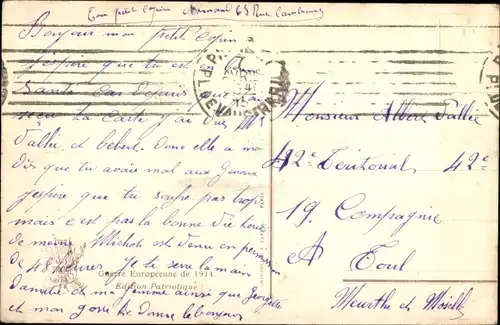 Ton petit copin Armand 65 Rue
Bonjour mon petit Copin
J'espère que tu est en
Santé Car depuis que
reçu la carte j'ai vue Mme
Dallié et bébert. Donc elle a ma
dis que tu avais mal aux Genoux
j'espère que tu soufre pas trop
mais c'est pas la bonne vie
de meme Michot est venu en permission
de 48 heures. Je te serre la main
d'amitié et ma femme ainsi que Georgette
et mon gosse te donne le bonjour
Guerre Européenne de 1914
Edition Patriotique
Monsieur Albert Dallié
42e Téritorial 42e
19. Compagnie
A Toul
Meurthe et Moselle